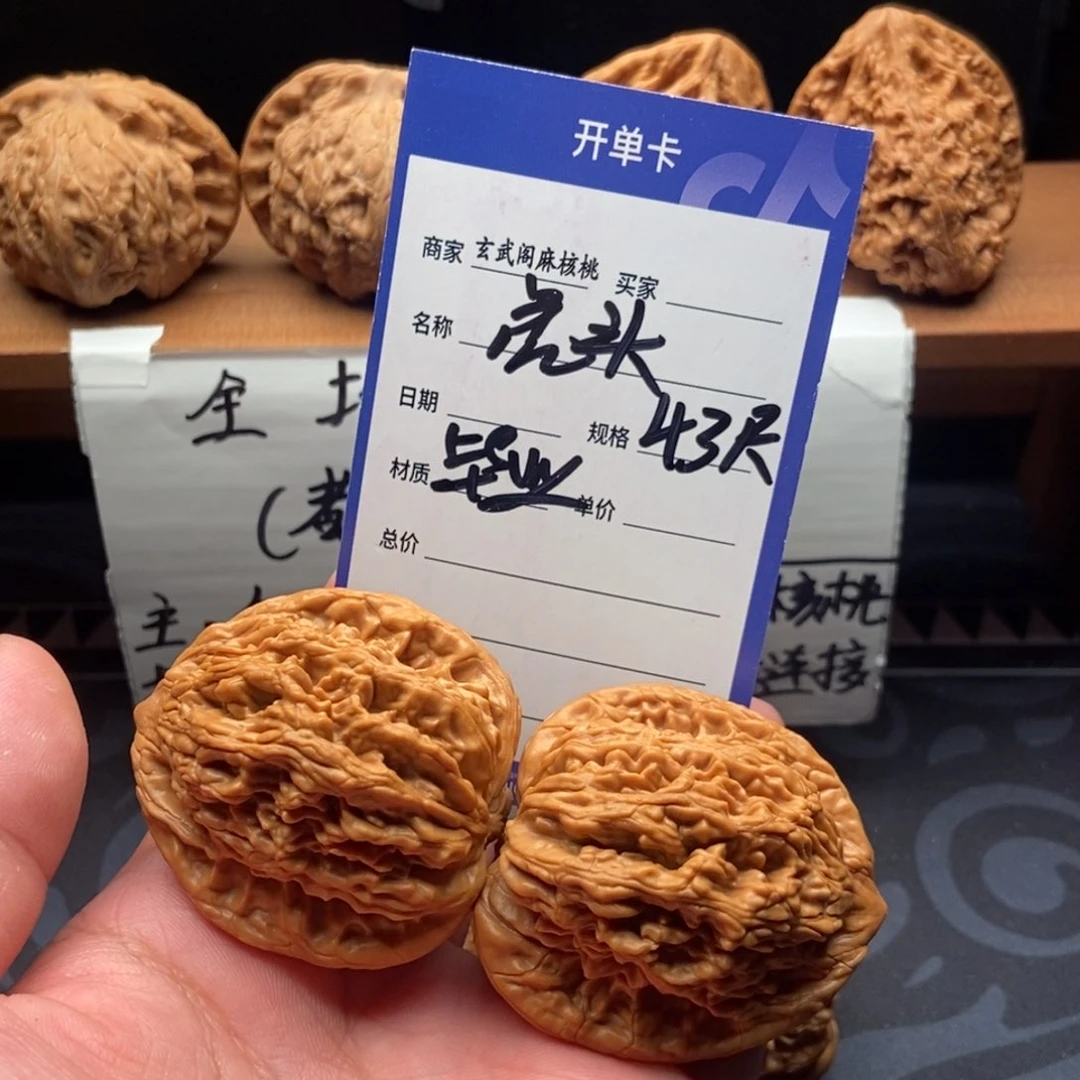 开单卡
商家 玄武阁麻核桃 买家
名称 虎头
日期 规格 43尺
材质 毕业 单价
总价
全
主
核桃
连接